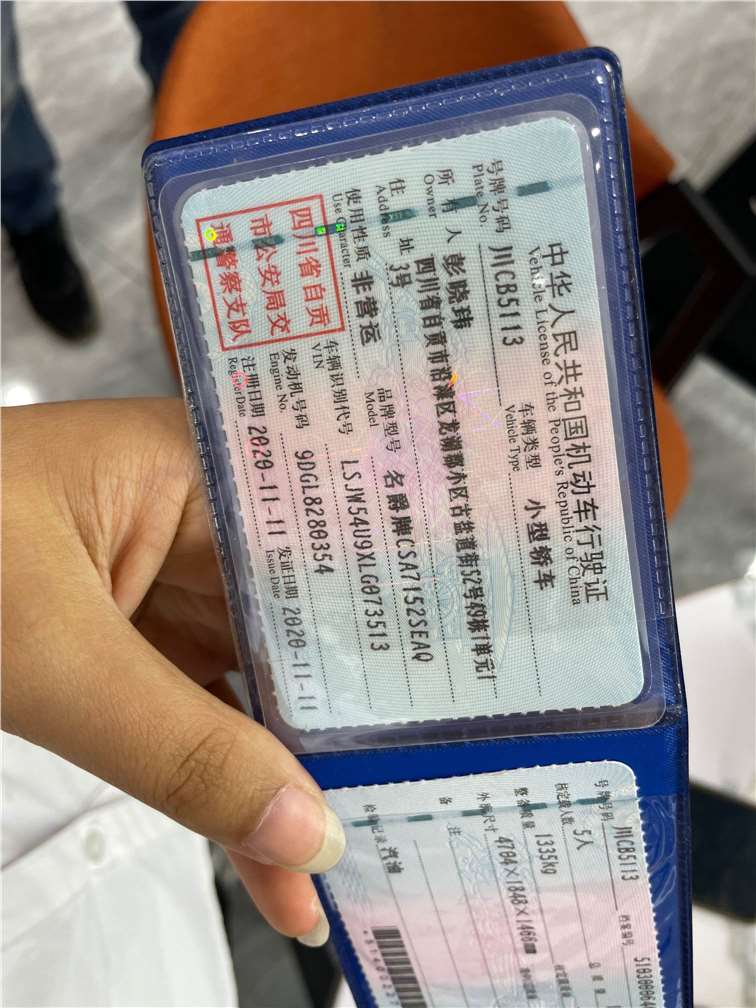 中华人民共和国机动车行驶证
Vehicle License of the People's Republic of China
号牌号码 川CB5113 车辆类型 小型轿车
Plate No. Vehicle Type
所有人 彭晓玮
Owner
住址 四川省自贡市沿滩区龙湖郡水区古盐道街52号49栋1单元1
3号
Address
使用性质 非营运 品牌型号 名爵牌CSA7152SEAQ
Use Character Model
四川省自贡
市公安局交
通警察支队
车辆识别代号 LSJW54U9XLG073513
VIN
发动机号码 9DGL8280354
Engine No.
注册日期 2020-11-11 发证日期 2020-11-11
Register Date Issue Date
号牌号码 川CB5113 档案编号
核定载人数 5人 总质量
整备质量 1335kg
外廓尺寸 4704×1848×1466mm
备注
检验记录 汽油